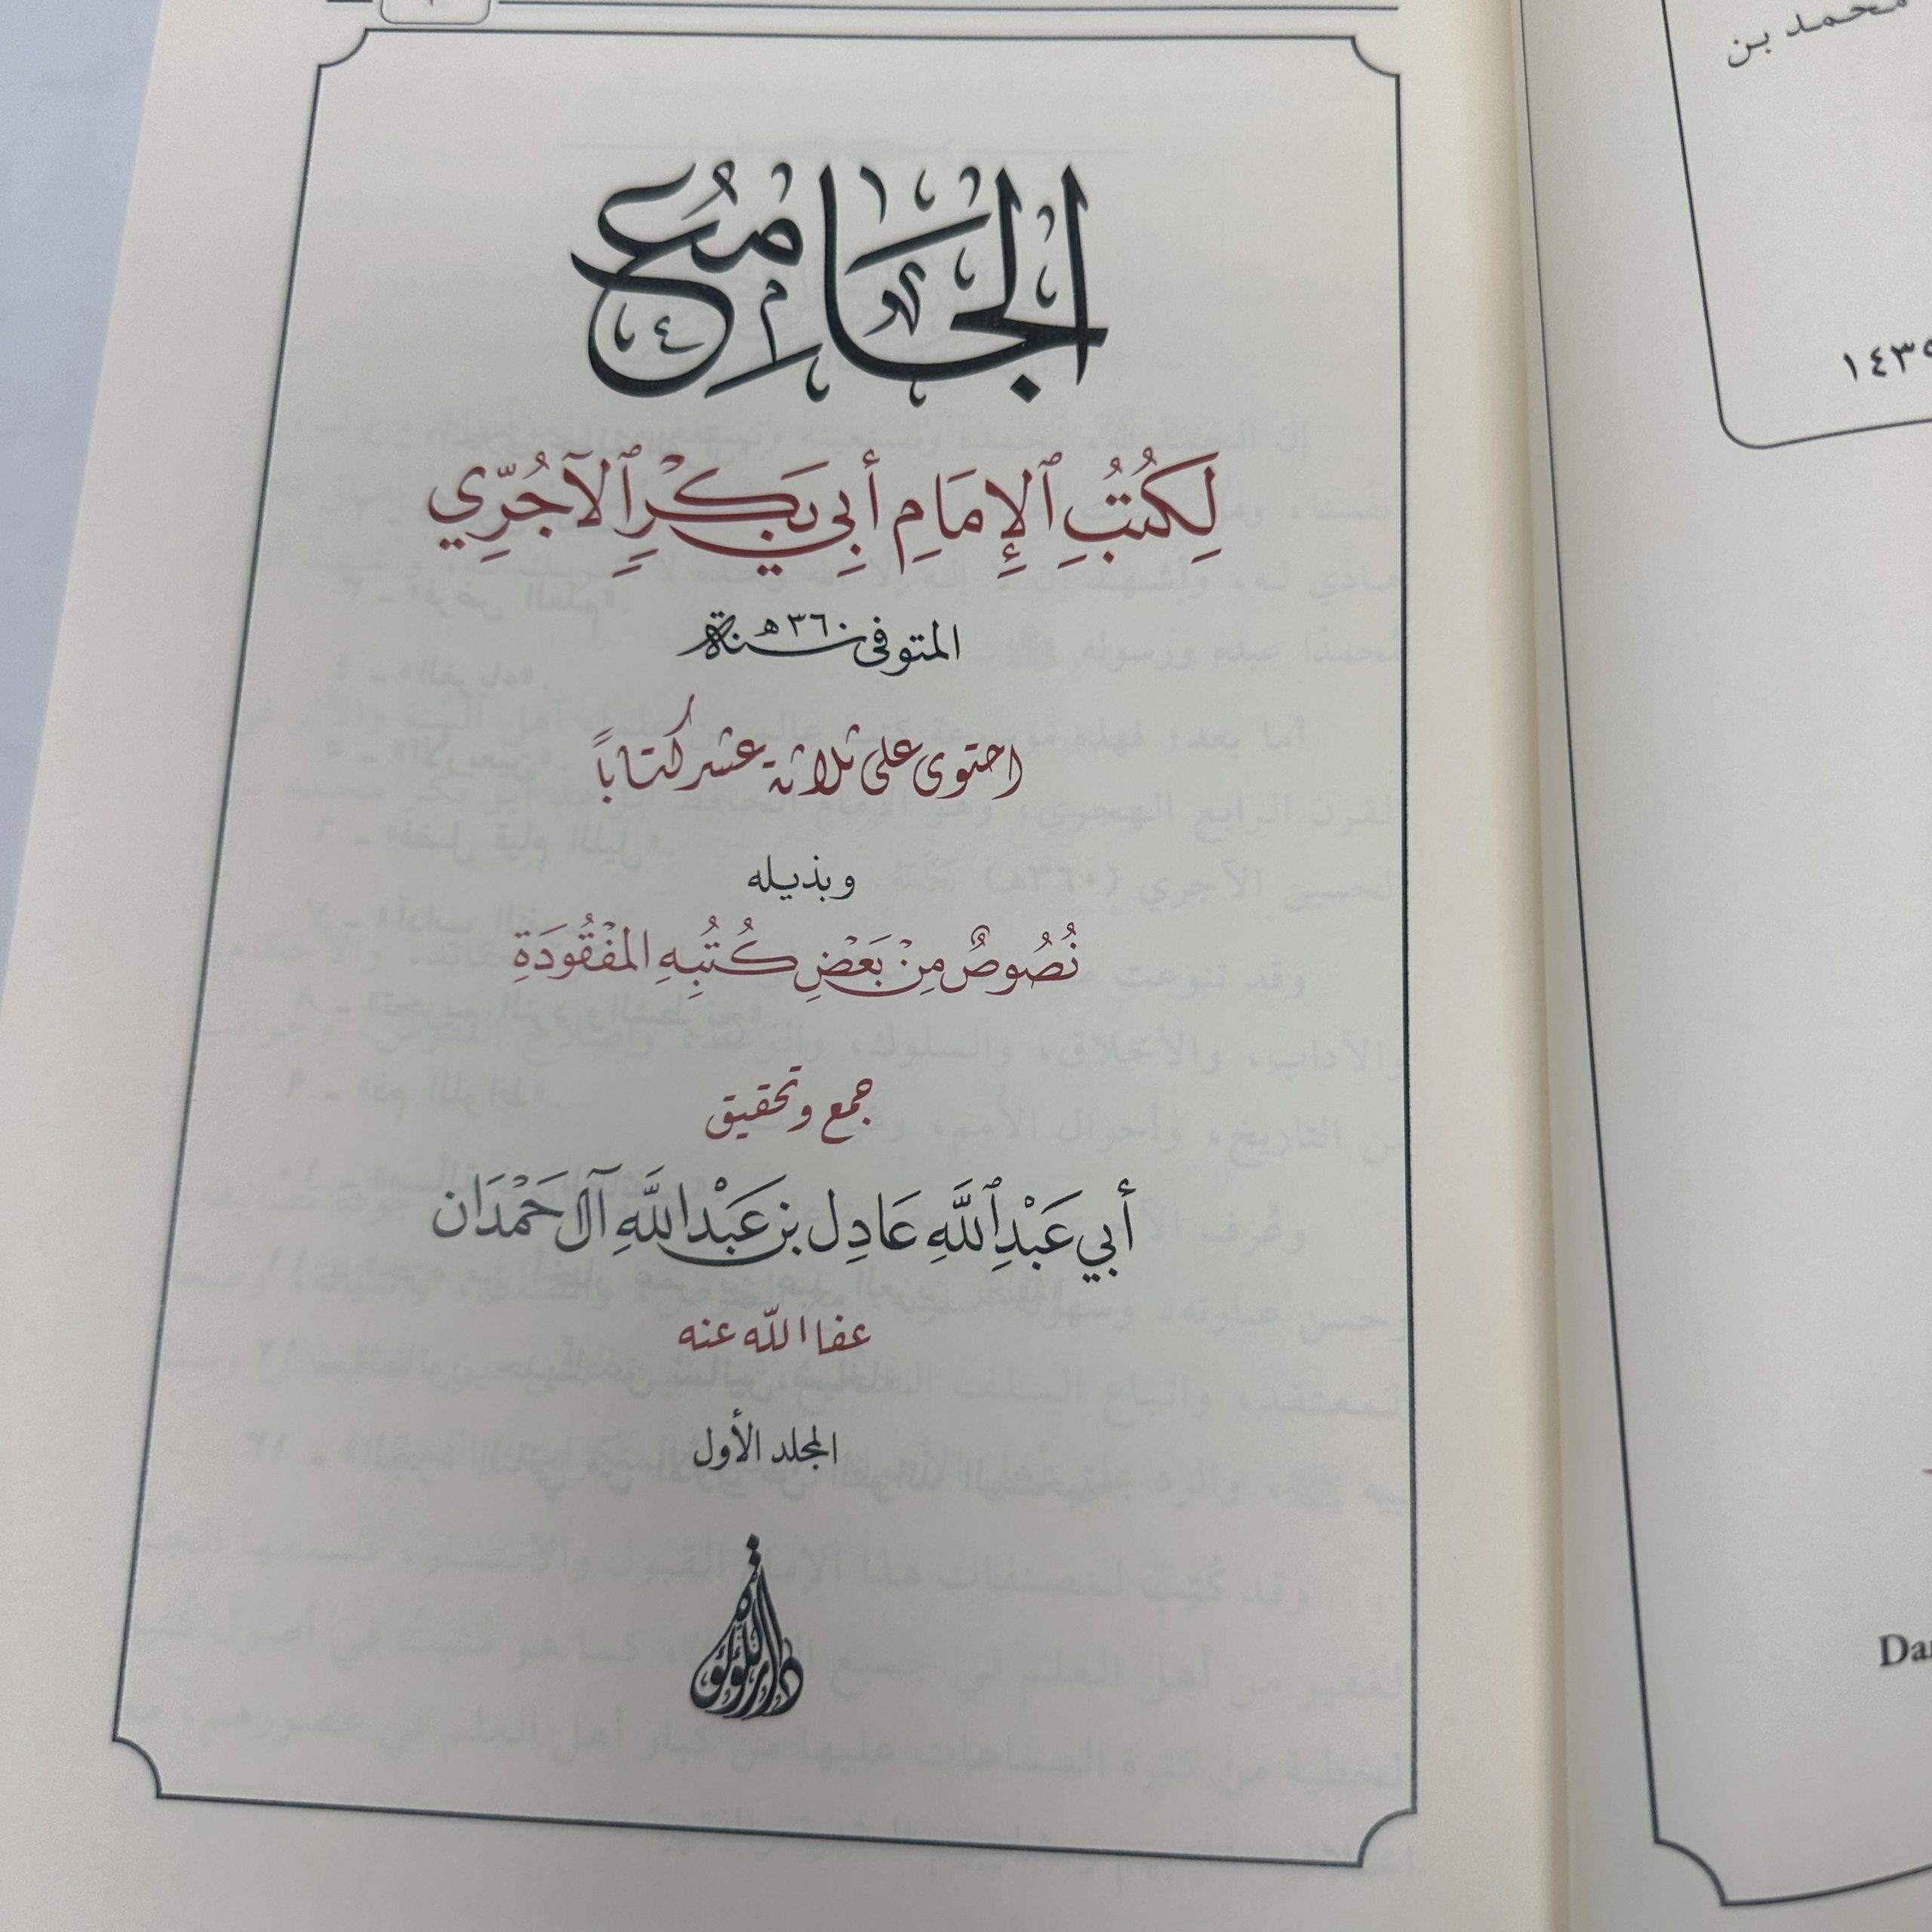 الجَامِع
لِكُتُبِ ٱلإِمَامِ أَبِي بَكْرٍ ٱلآجُرِّي
المتوفى سنة ٣٦٠هـ
احتوى على ثلاثة عشر كتاباً
وبذيله
نُصُوصٌ مِنْ بَعْضِ كُتُبِهِ المَفْقُودَةِ
جمع وتحقيق
أبي عَبْدِ ٱللَّهِ عَادِل بن عَبْدِ اللَّهِ آل حَمْدَان
عفا الله عنه
المجلد الأول
دار اللؤلؤة
محمد بن